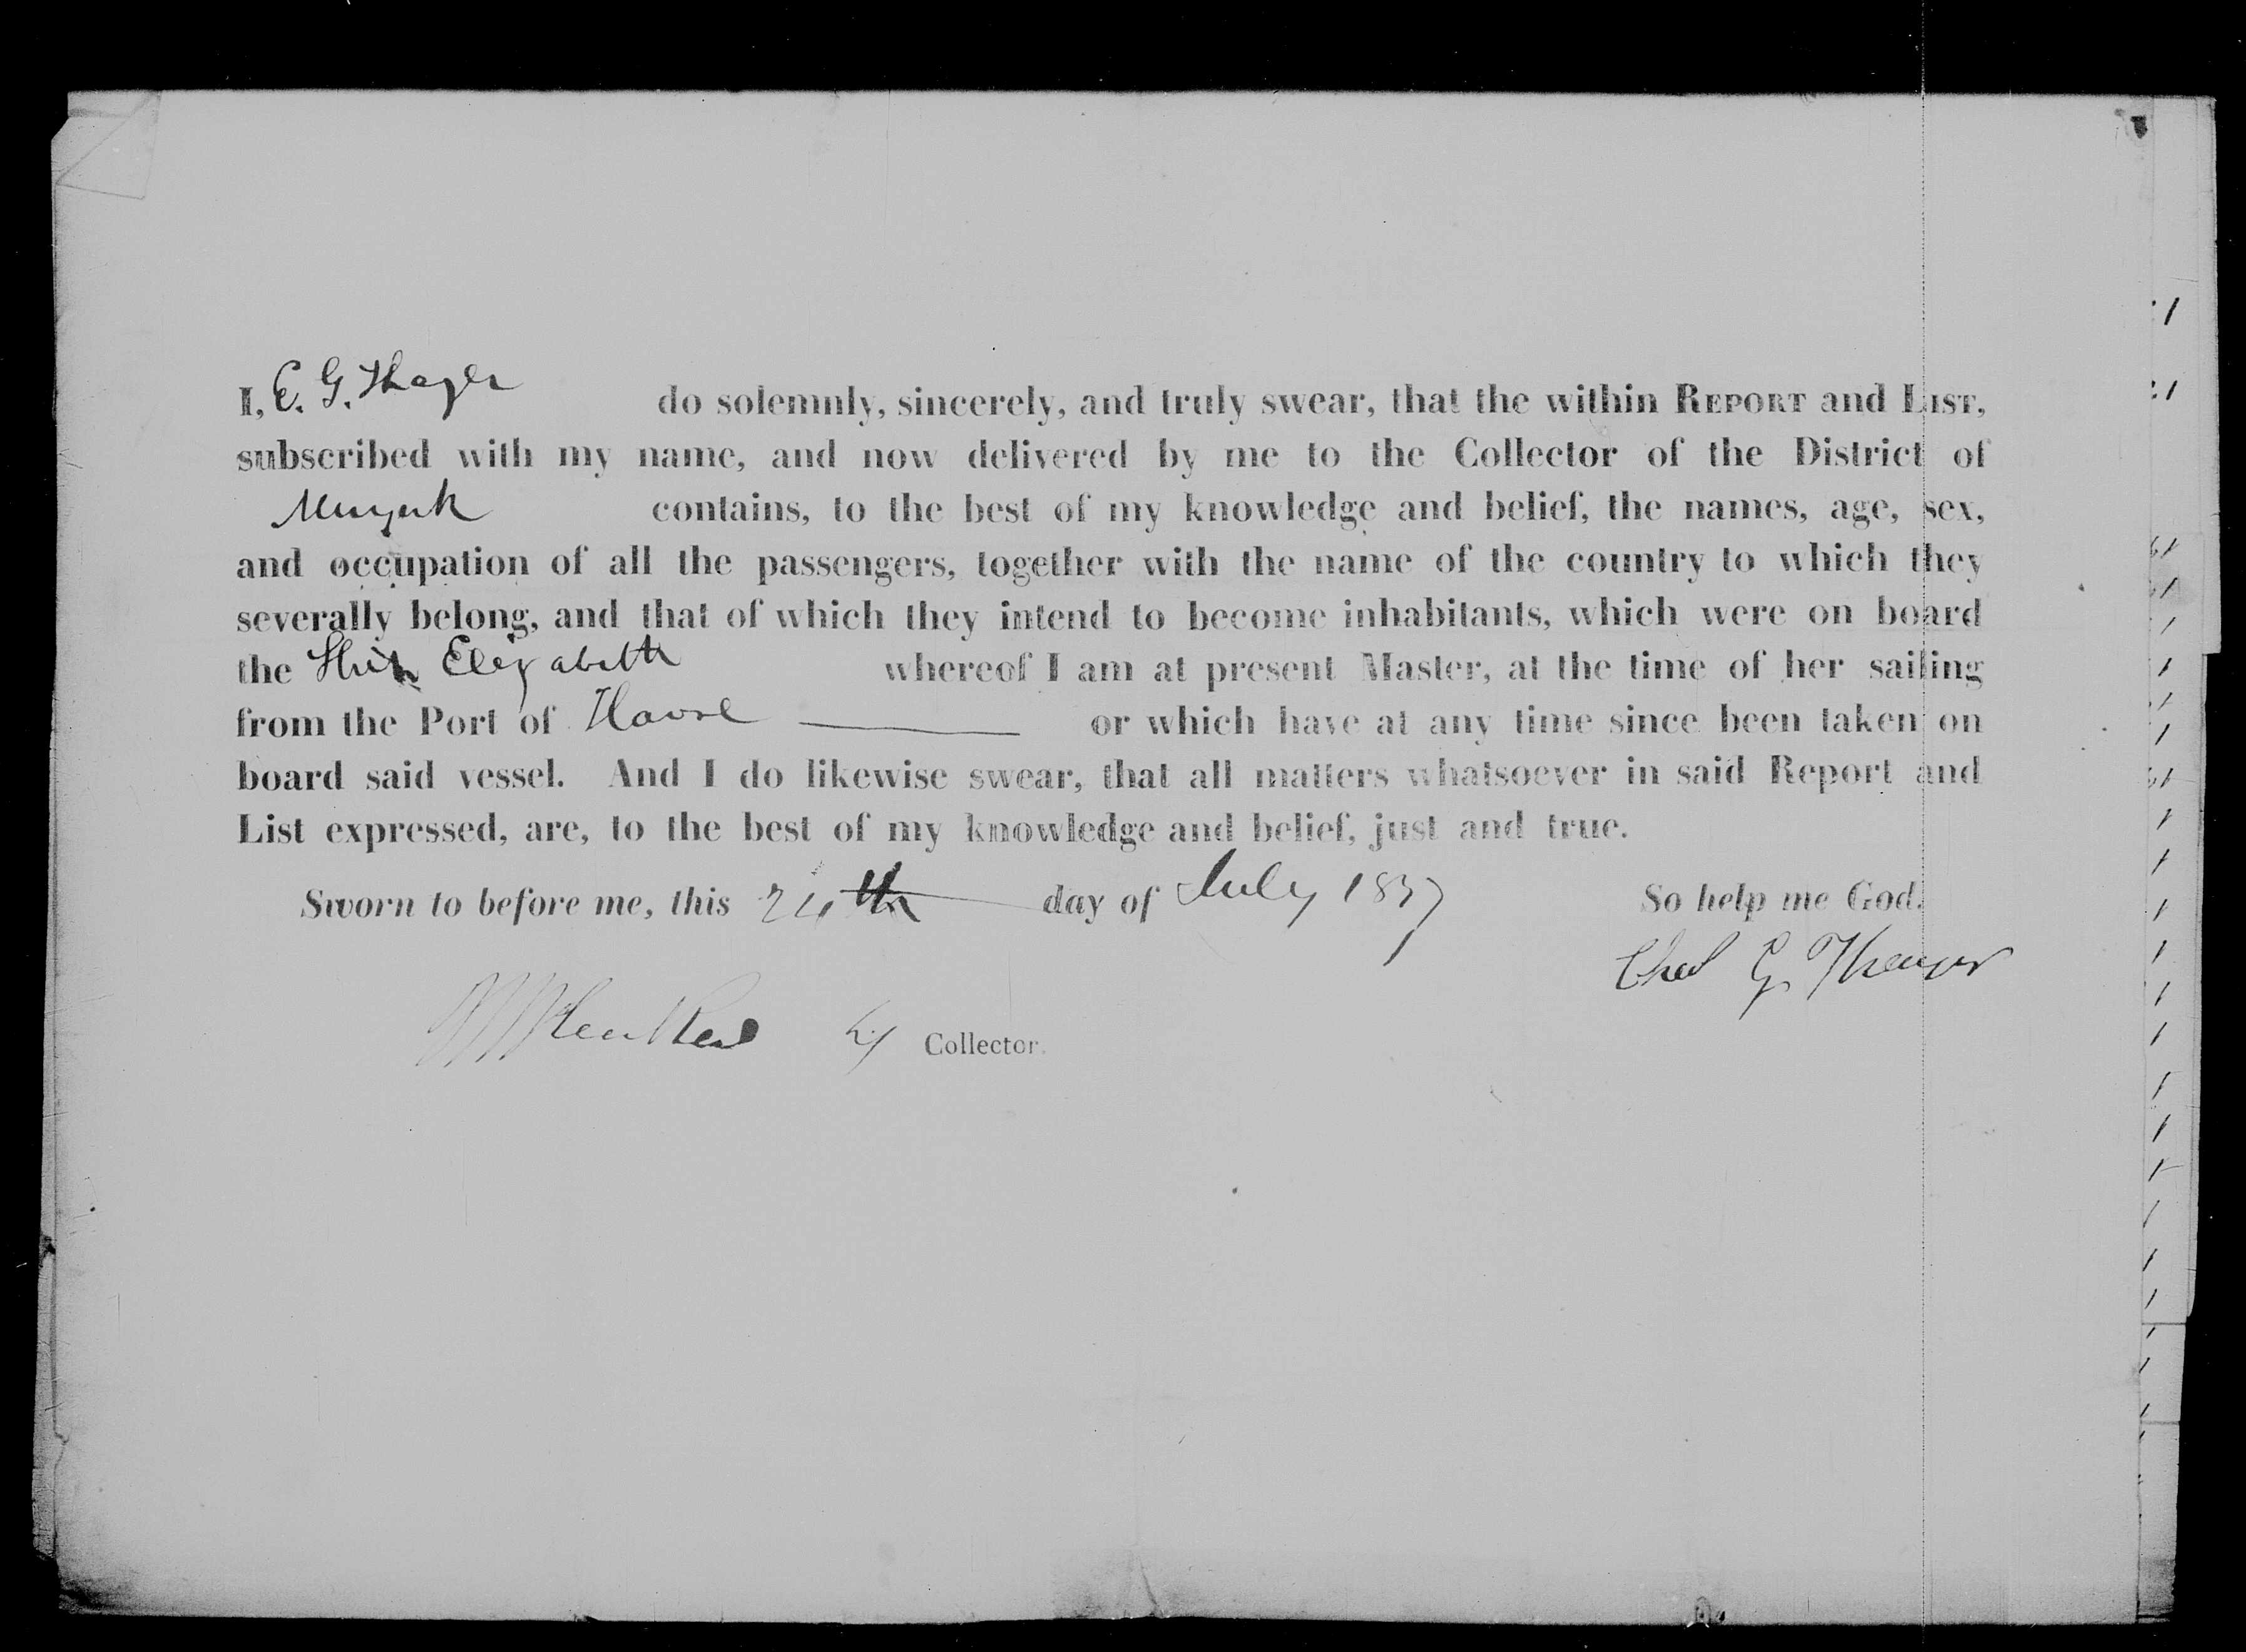 I, C. G. Thayer do solemnly, sincerely, and truly swear, that the within REPORT and LIST,
subscribed with my name, and now delivered by me to the Collector of the District of
Newyork contains, to the best of my knowledge and belief, the names, age, sex,
and occupation of all the passengers, together with the name of the country to which they
severally belong, and that of which they intend to become inhabitants, which were on board
the Ship Elizabeth whereof I am at present Master, at the time of her sailing
from the Port of Havre or which have at any time since been taken on
board said vessel. And I do likewise swear, that all matters whatsoever in said Report and
List expressed, are, to the best of my knowledge and belief, just and true.
Sworn to before me, this 24th day of July 1837 So help me God.
Chas G. Thayer
Collector.